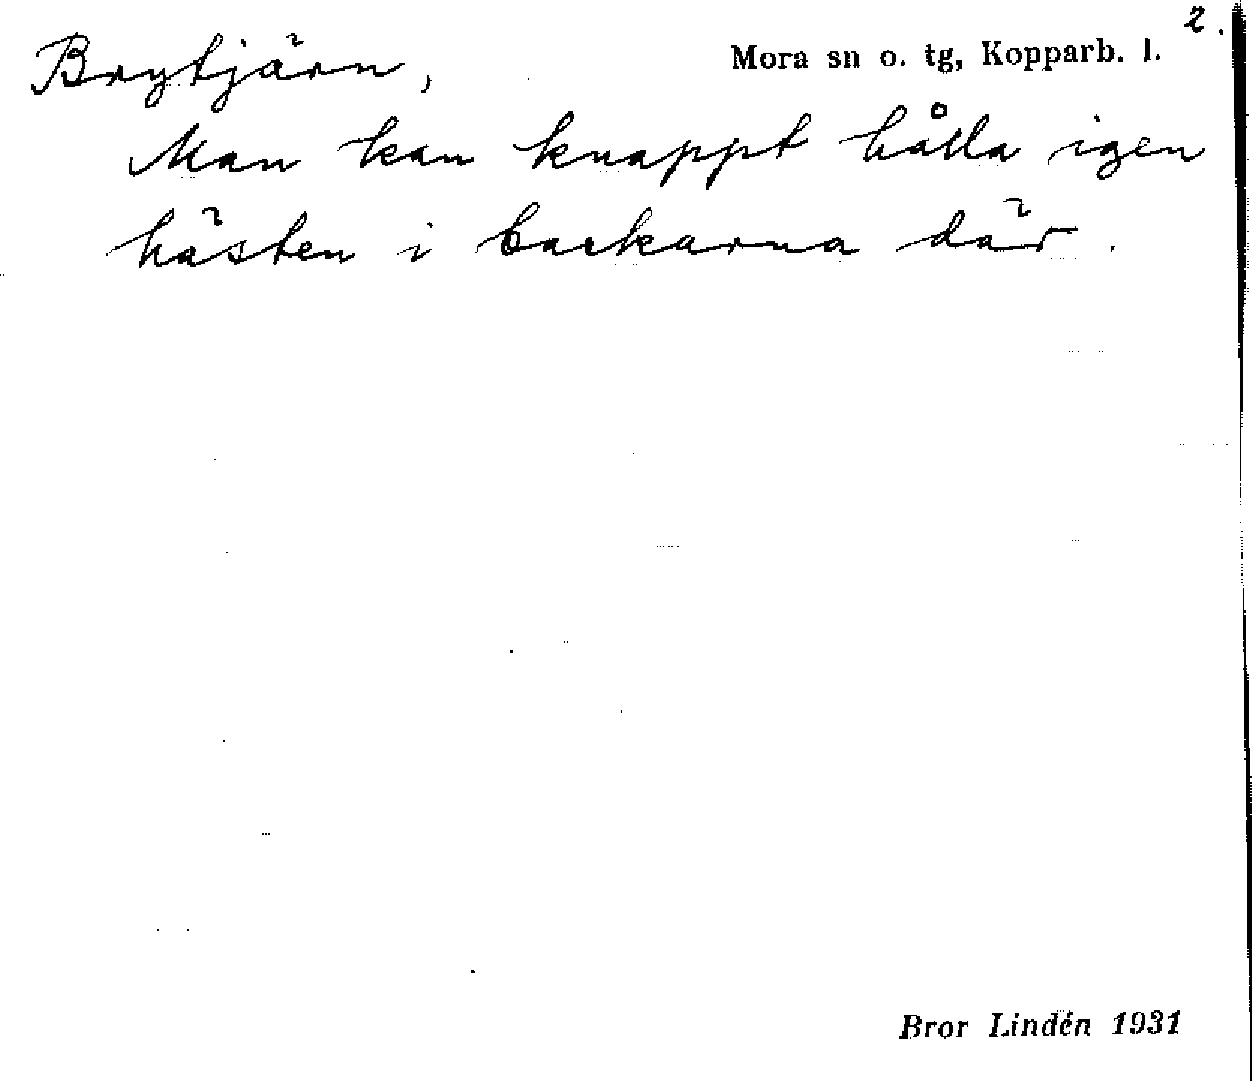 2.
Brytjärn,
Mora sn o. tg, Kopparb. l.
Man kan knappt hålla igen
hästen i backarna där.
Bror Lindén 1931